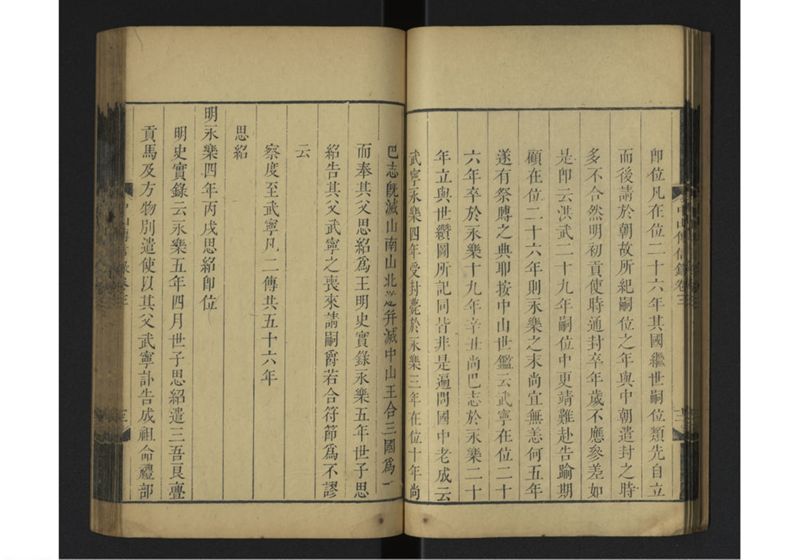 即位凡在位二十六年其國繼世嗣位類先自立
而後請於朝故所紀嗣位之年與中朝遣封之時
多不合然明初貢使時通封卒年歲不應參差如
是即云洪武二十九年嗣位中更靖難赴告踰期
顧在位二十六年則永樂之末尚宜無恙何五年
遂有祭賻之典耶按中山世鑑云武寧在位二十
六年卒於永樂十九年辛丑尚巴志於永樂二十
年立與世纘圖所記同皆非是遍問國中老成云
武寧永樂四年受封薨於永樂三年在位十年尚
巴志旣滅山南山北遂幷滅中山王合三國爲一
而奉其父思紹爲王明史實錄永樂五年世子思
紹告其父武寧之喪來請嗣爵若合符節爲不謬
云
察度至武寧凡二傳共五十六年
思紹
明永樂四年丙戌思紹即位
明史實錄云永樂五年四月世子思紹遣三吾良亹
貢馬及方物別遣使以其父武寧訃告成祖命禮部
中山傳信錄卷三